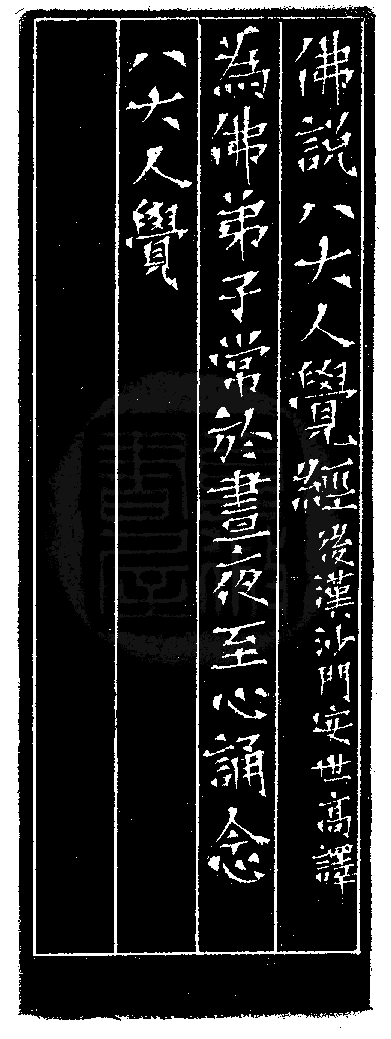 佛説八大人覺經後漢沙門安世高譯
為佛弟子常於晝夜至心誦念
八大人覺